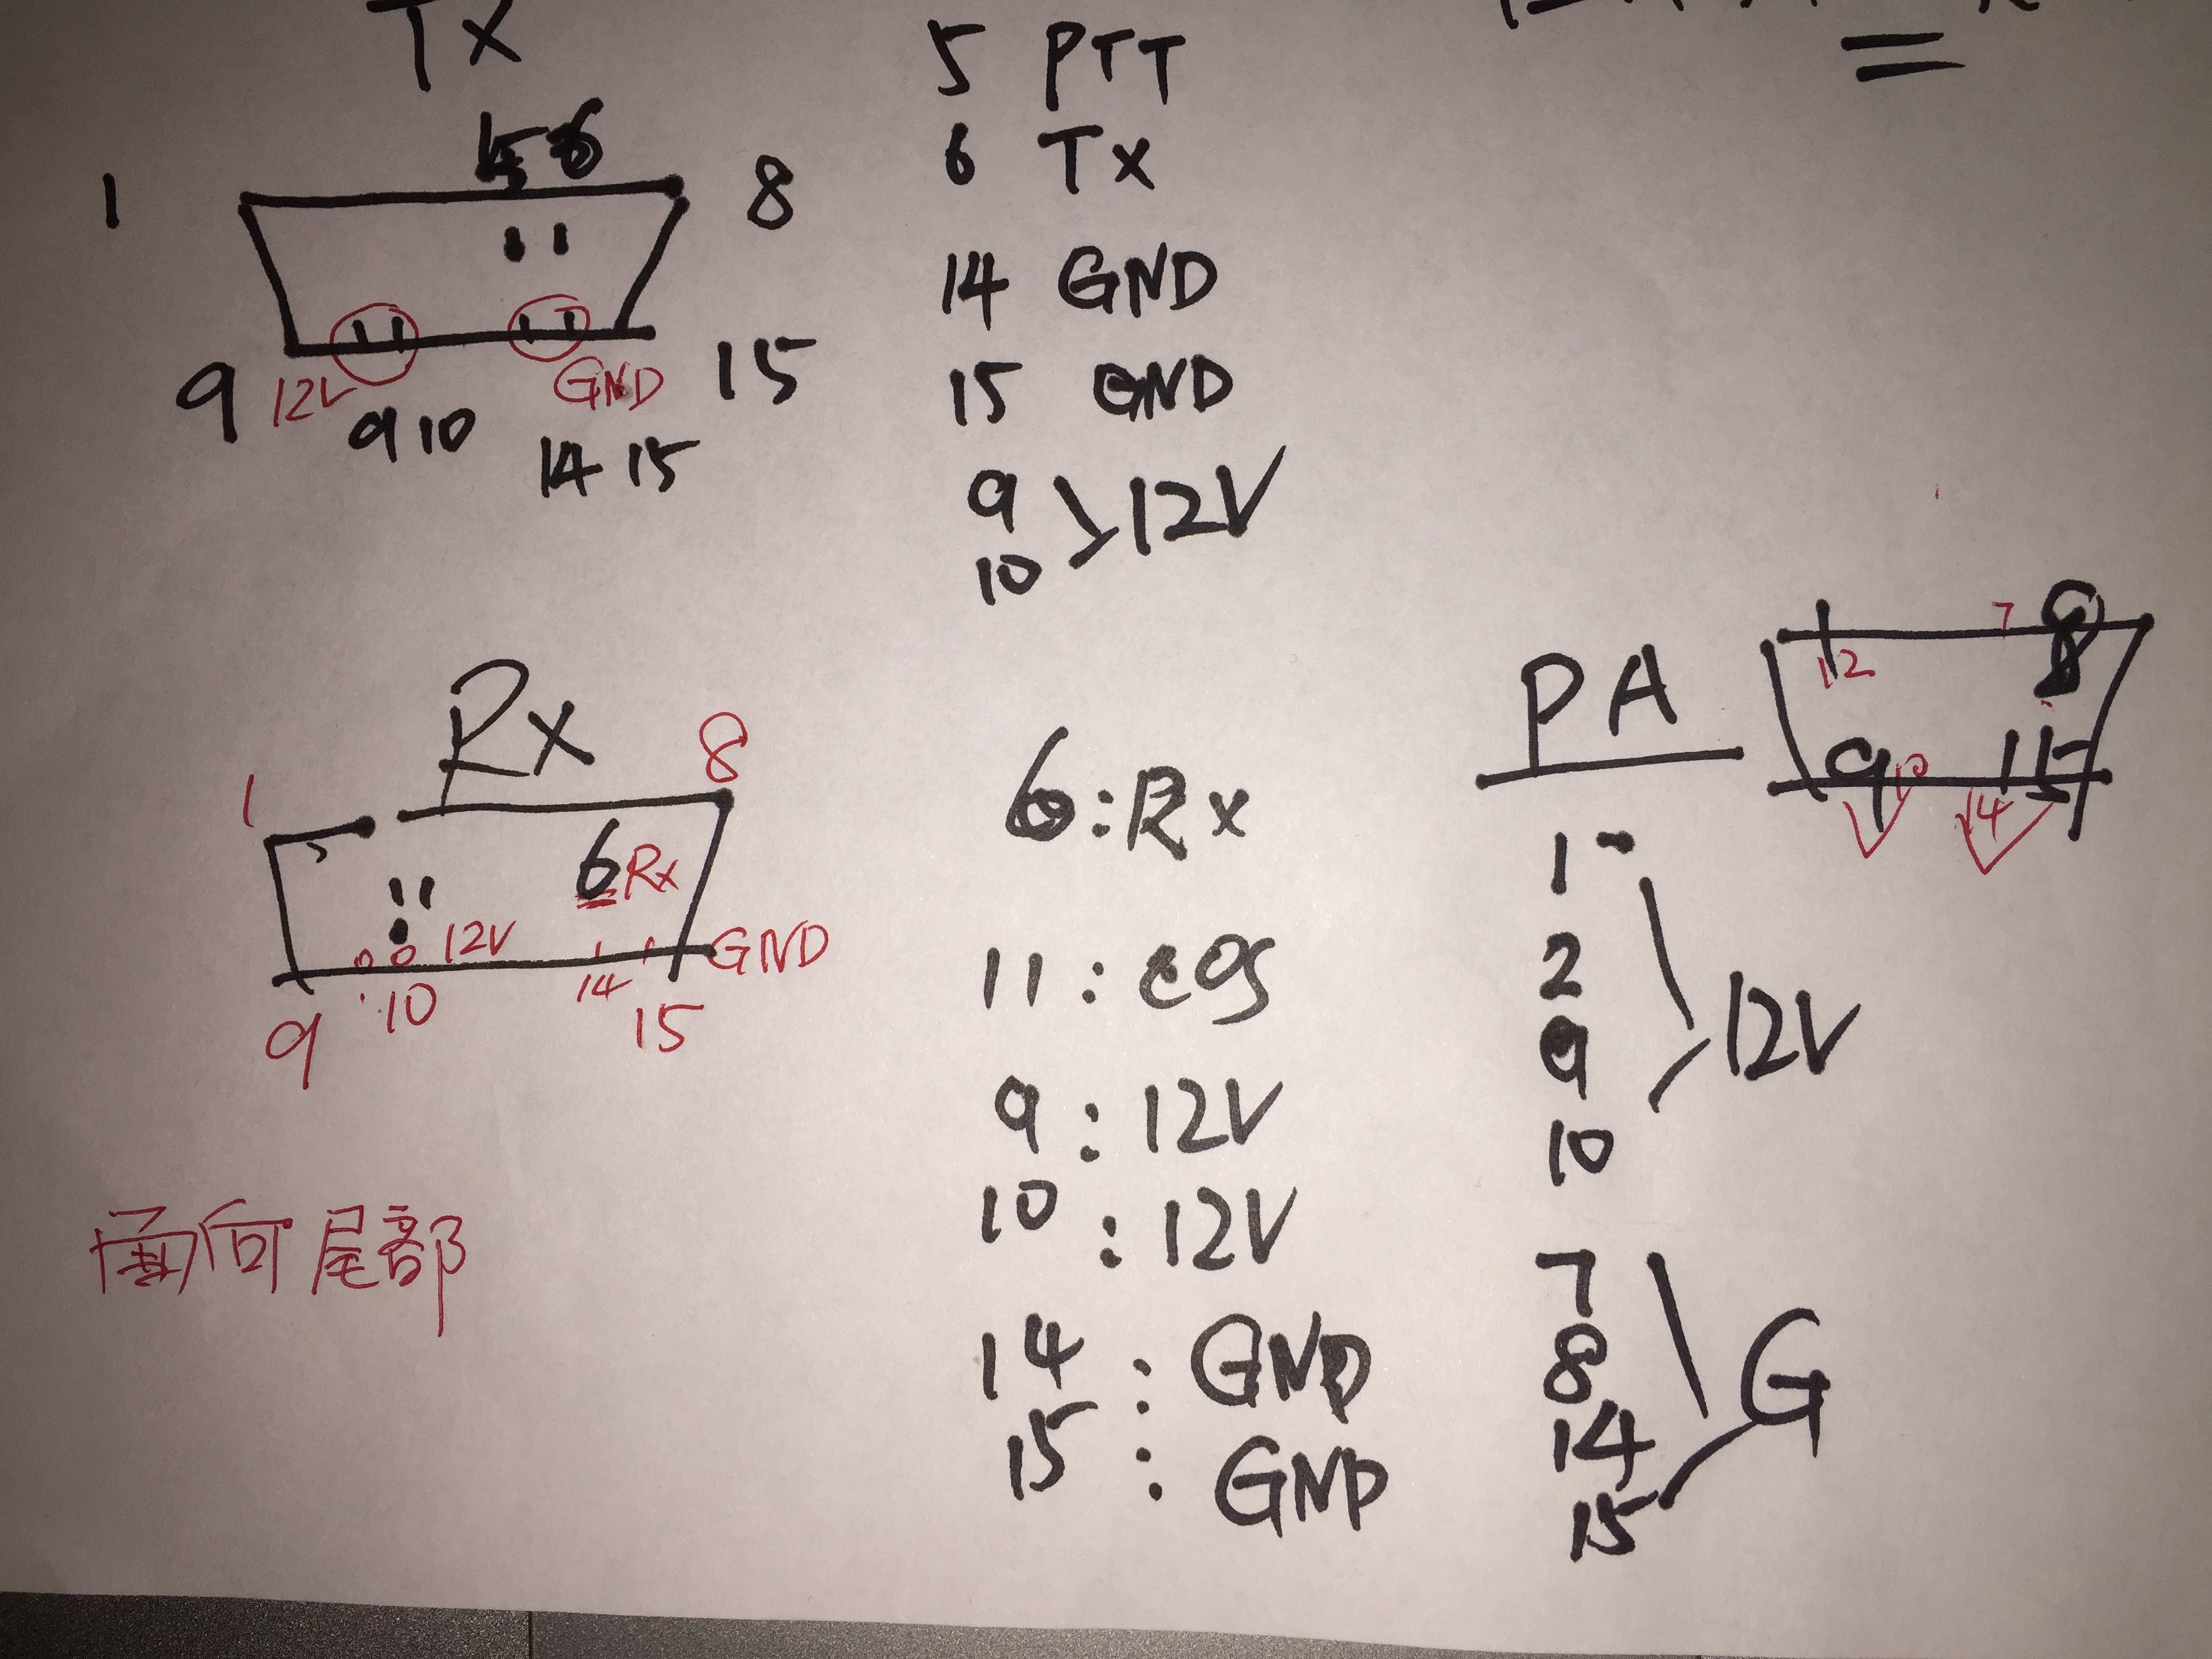 TX
5 6
1
8
9
12V
GND
15
9 10
14 15
5 PTT
6 TX
14 GND
15 GND
9
10
12V
Rx
1
8
6 Rx
12V
GND
9
10
14
15
面向尾部
6:Rx
11:
9:12V
10:12V
14:GND
15:GND
PA
1
7
8
12
9
10
14
15
1
2
9
10
12V
7
8
14
15
G